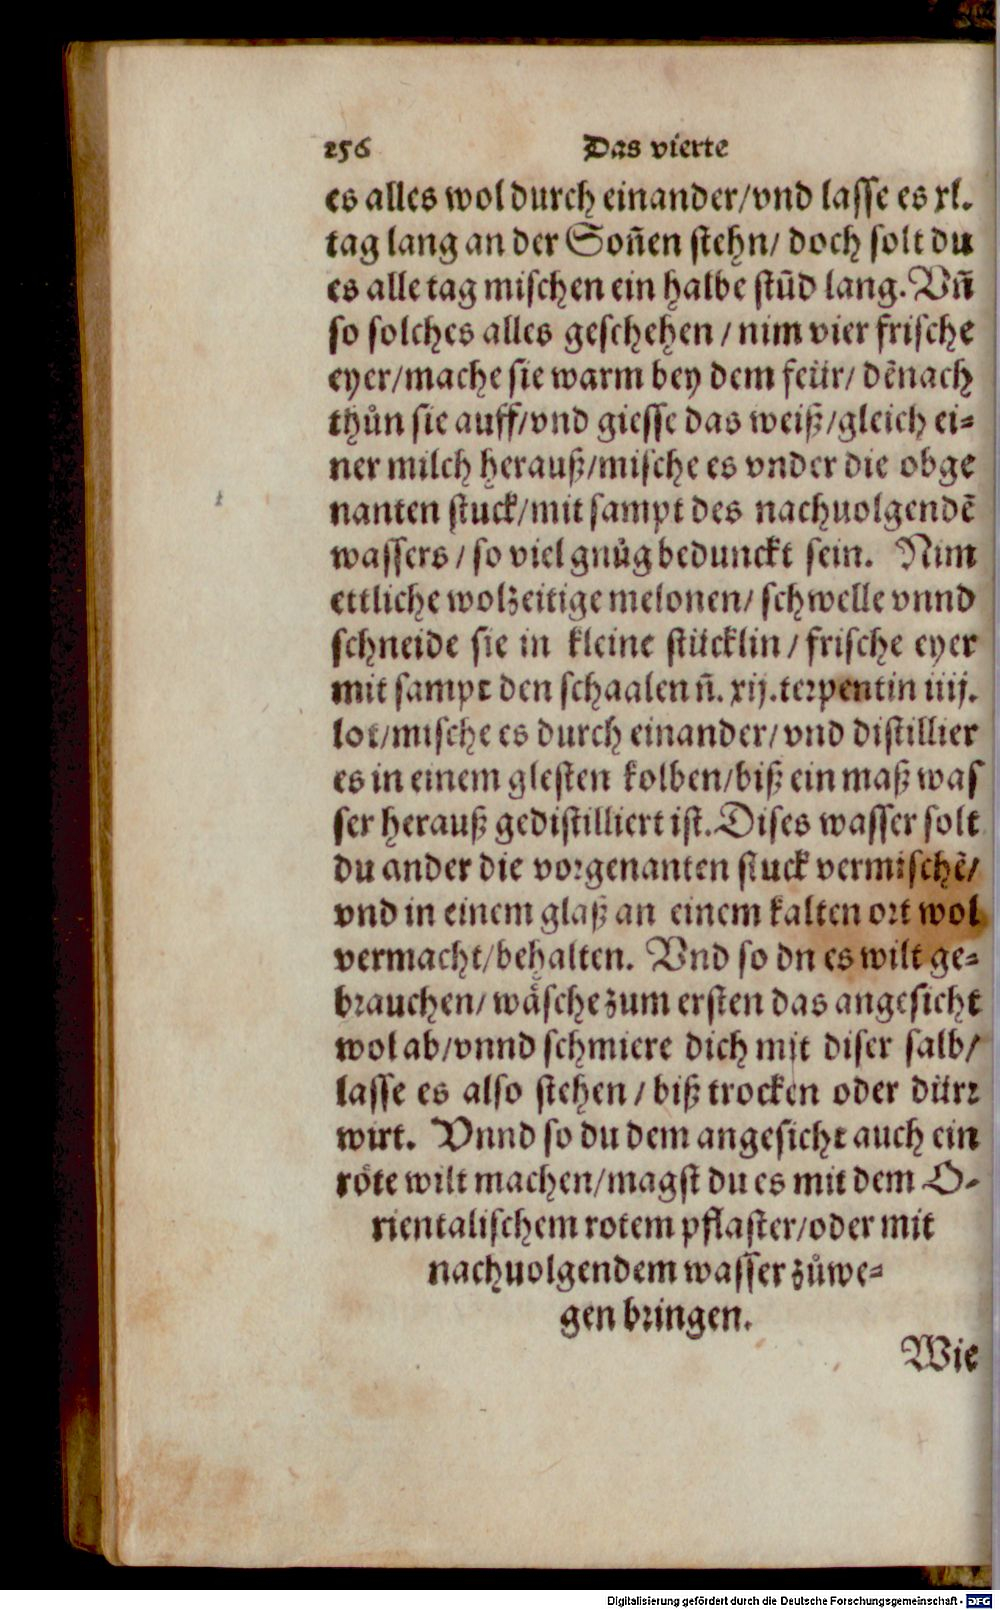 256 Das vierte
es alles wol durch einander/vnd lasse es xl.
tag lang an der Soñen stehn/ doch solt du
es alle tag mischen ein halbe stũd lang. Vñ
so solches alles geschehen / nim vier frische
eyer/mache sie warm bey dem feür/ dẽnach
thůn sie auff/vnd giesse das weiß/gleich ei-
ner milch herauß/mische es vnder die obge
nanten stuck/mit sampt des nachuolgendẽ
wassers / so viel gnůg bedunckt sein. Nim
ettliche wolzeitige melonen/ schwelle vnnd
schneide sie in kleine stücklin / frische eyer
mit sampt den schaalen ñ. xij. terpentin iiij.
lot/mische es durch einander/ vnd distillier
es in einem glesten kolben/biß ein maß was
ser herauß gedistilliert ist. Dises wasser solt
du ander die vorgenanten stuck vermischẽ/
vnd in einem glaß an einem kalten ort wol
vermacht/behalten. Vnd so dn es wilt ge-
brauchen/ wäsche zum ersten das angesicht
wol ab/vnnd schmiere dich mit diser salb/
lasse es also stehen / biß trocken oder dürr
wirt. Vnnd so du dem angesicht auch ein
röte wilt machen/magst du es mit dem O-
rientalischem rotem pflaster/oder mit
nachuolgendem wasser zůwe-
gen bringen.
Wie
Digitalisierung gefördert durch die Deutsche Forschungsgemeinschaft - DFG